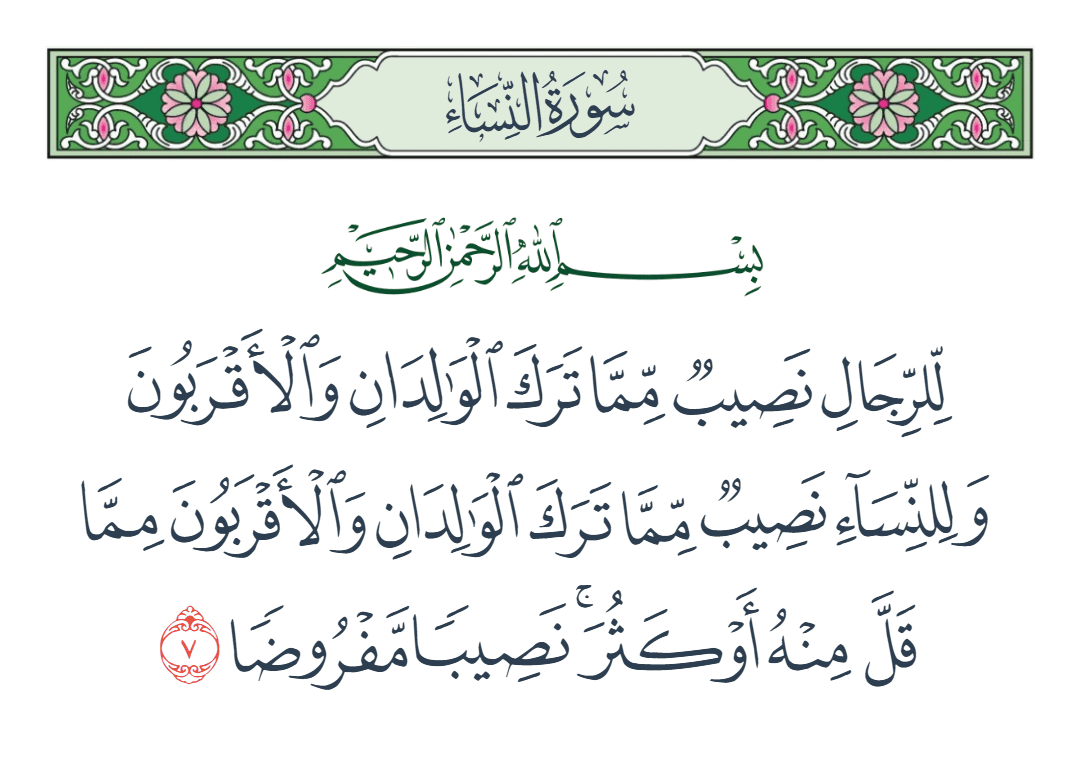 سُورَةُ النِّسَاءِ
بِسْمِ ٱللَّهِ ٱلرَّحْمَٰنِ ٱلرَّحِيمِ
لِّلرِّجَالِ نَصِيبٌ مِّمَّا تَرَكَ ٱلْوَٰلِدَانِ وَٱلْأَقْرَبُونَ
وَلِلنِّسَآءِ نَصِيبٌ مِّمَّا تَرَكَ ٱلْوَٰلِدَانِ وَٱلْأَقْرَبُونَ مِمَّا
قَلَّ مِنْهُ أَوْ كَثُرَ ۚ نَصِيبًا مَّفْرُوضًا ٧